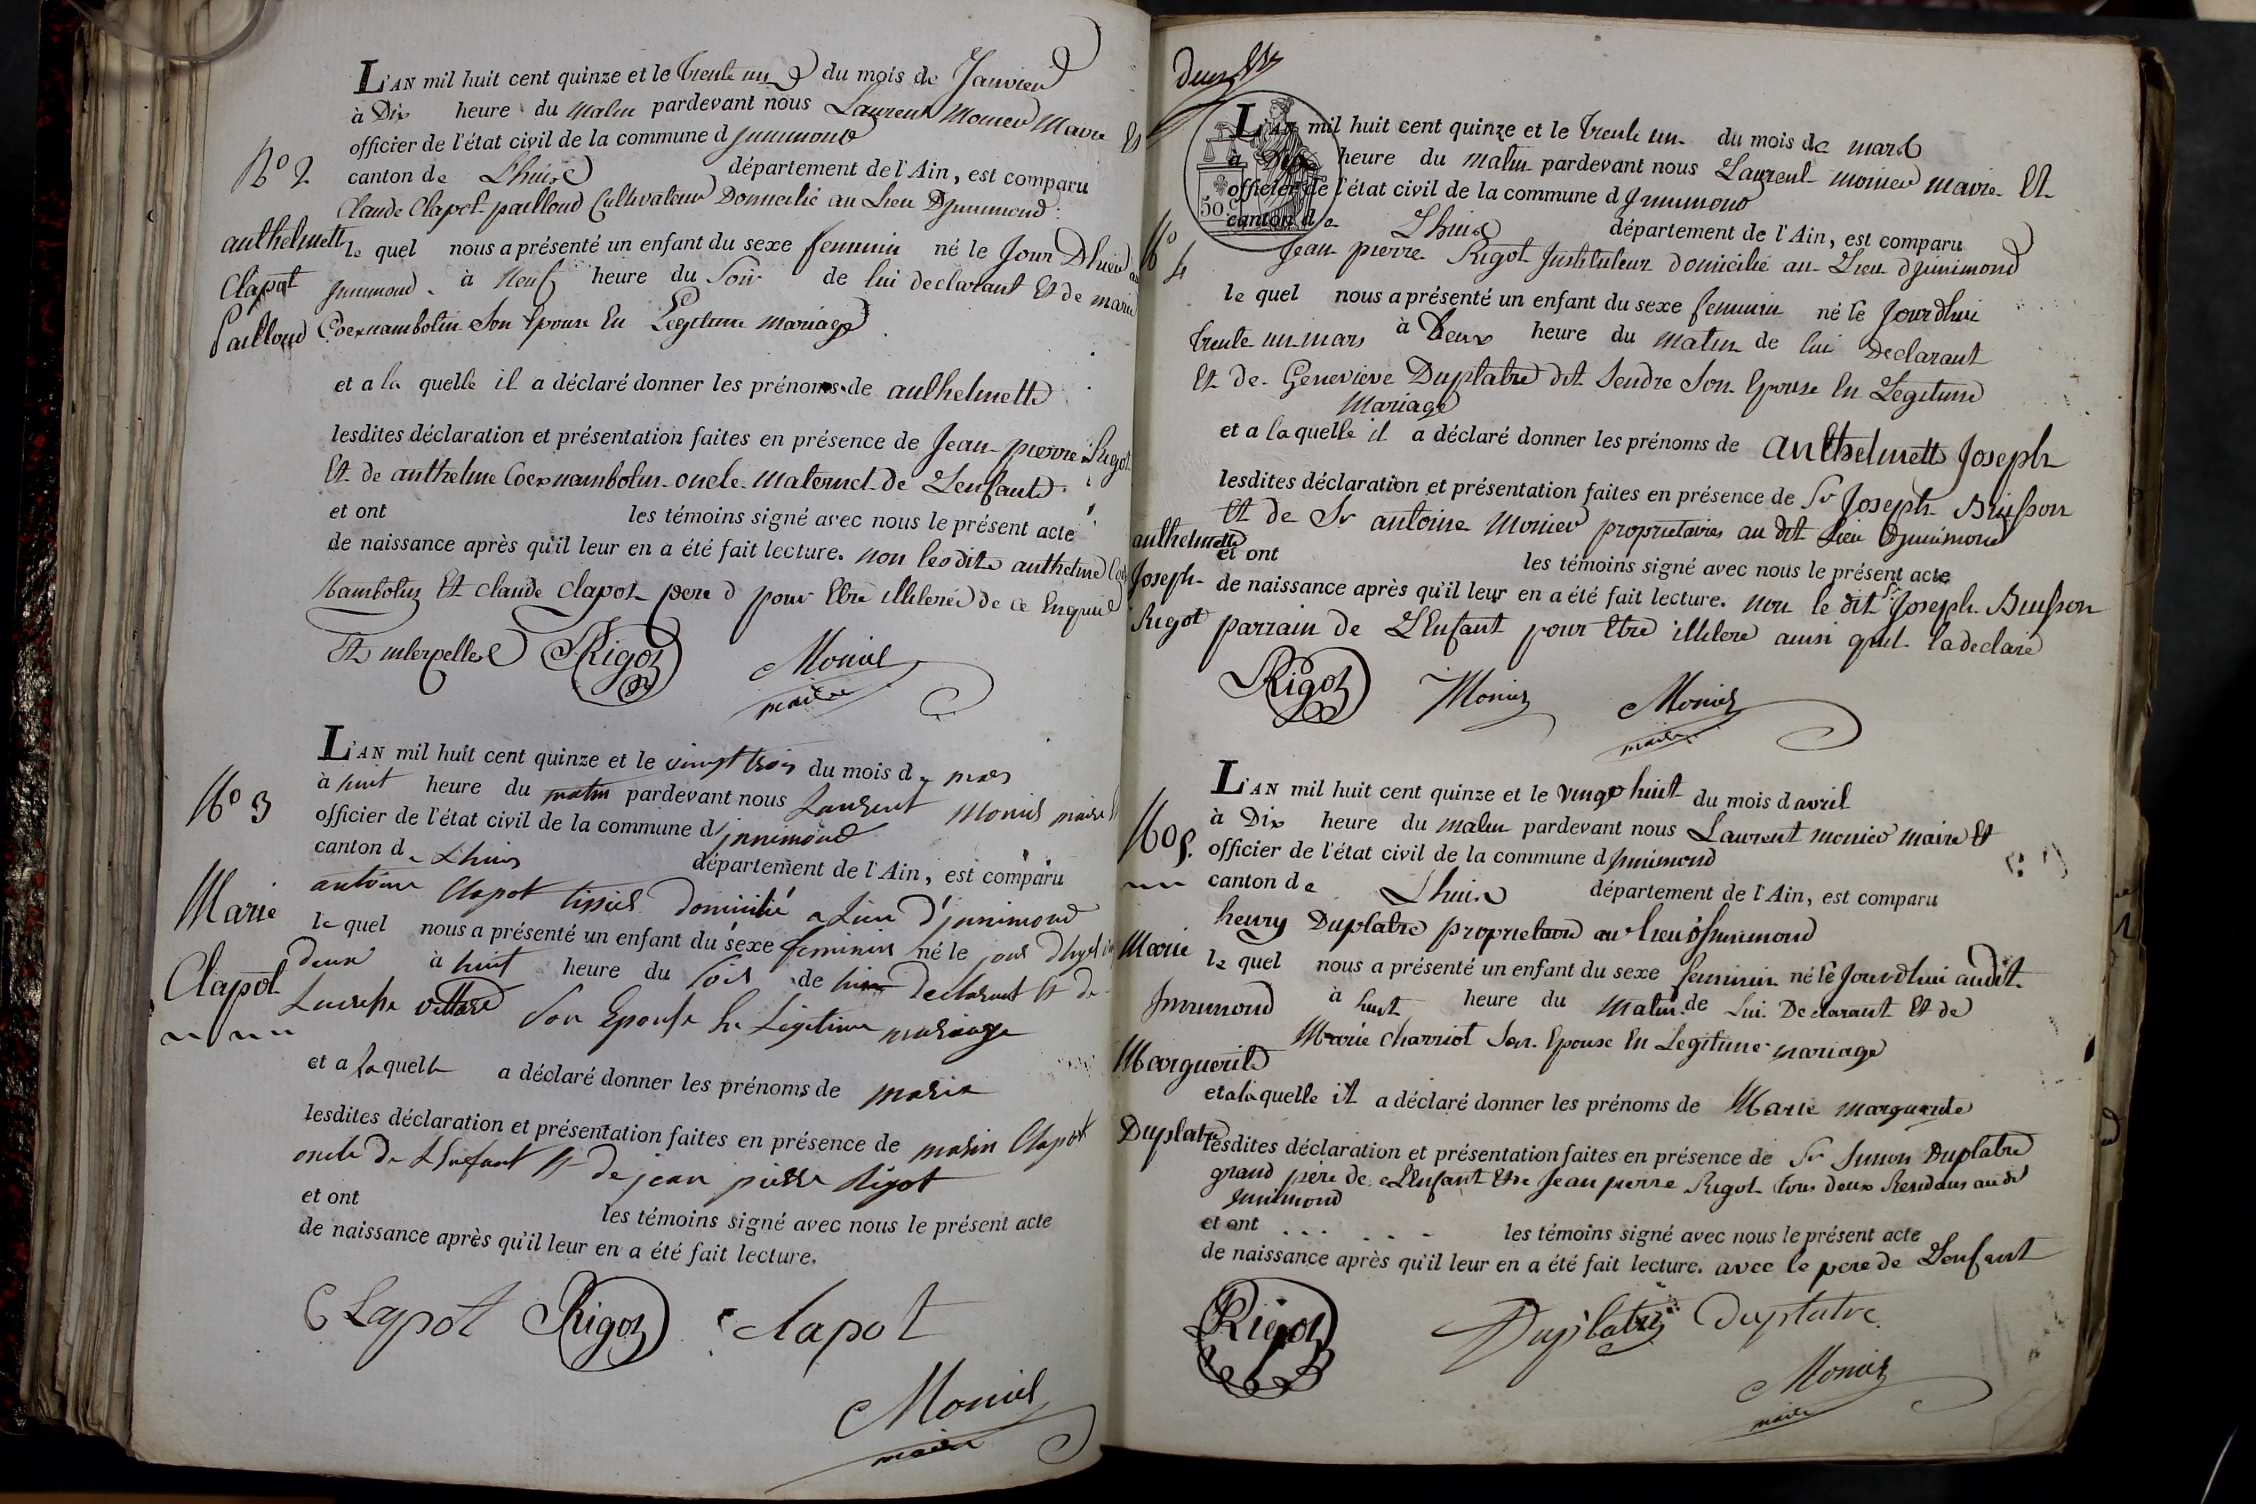 L'AN mil huit cent quinze et le trente un du mois de Janvier
à Dix heure du matin pardevant nous Laurent Monier Maire Et
officier de l'état civil de la commune d Jnnimond
N° 2 canton de Lhuis département de l'Ain, est comparu
Claude Clapot pailloud Cultivateur Domicilié au Lieu DJnnimond
anthelmette le quel nous a présenté un enfant du sexe feminin né le Jour Dhier au
Clapot Jnnimond à Neuf heure du Soir de lui declarant Et de marie
Pailloud Coexnambolin Son Epouse En Legitime mariage
et a la quelle il a déclaré donner les prénoms de anthelmette
lesdites déclaration et présentation faites en présence de Jean pierre Rigot
Et de anthelme Coexnambolin oncle Maternel de Lenfant
et ont les témoins signé avec nous le présent acte
de naissance après qu'il leur en a été fait lecture. non lesdits anthelme Coex
Nambolin Et claude Clapot pere pour Etre illiteré de ce Enquis
Et interpellé Rigot Monier
maire
L'AN mil huit cent quinze et le vingt trois du mois de mars
N° 3 à huit heure du matin pardevant nous Laurent Monier maire Et
officier de l'état civil de la commune d'jnnimond
canton de Lhuis département de l'Ain, est comparu
antoine Clapot tissier domicilié a Lieu d'jnnimond
Marie le quel nous a présenté un enfant du sexe feminin né le jour dhyer vingt
Clapot deux à huit heure du soir de lui declarant Et de
Son Epouse En Légitime mariage
et a la quelle a déclaré donner les prénoms de marie
lesdites déclaration et présentation faites en présence de marin Clapot
oncle de Lenfant Et de jean pierre Rigot
et ont les témoins signé avec nous le présent acte
de naissance après qu'il leur en a été fait lecture.
Clapot Rigot Clapot
Monier
maire
50 C
L'AN mil huit cent quinze et le trente un du mois de mars
à Dix heure du matin pardevant nous Laurent monier maire Et
officier de l'état civil de la commune d Jnnimond
N° 4 canton de Lhuis département de l'Ain, est comparu
Jean pierre Rigot Instituteur domicilié au Lieu djnnimond
le quel nous a présenté un enfant du sexe feminin né le Jourdhui
trente un mars à Deux heure du matin de lui Declarant
Et de Genevieve Duplatre dit Sendre Son Epouse En Legitime
Mariage
et a la quelle il a déclaré donner les prénoms de anthelmette Joseph
lesdites déclaration et présentation faites en présence de Sr Joseph Buisson
Et de Sr antoine Monier proprietaires au dit Lieu Djnnimond
anthelmette et ont les témoins signé avec nous le présent acte
Joseph de naissance après qu'il leur en a été fait lecture. non le dit Sr Joseph Buisson
Rigot parrain de LEnfant pour Etre illiteré ainsi quil la declaré
Rigot Monier Monier
maire
L'AN mil huit cent quinze et le vingt huit du mois d avril
à Dix heure du matin pardevant nous Laurent monier maire Et
N° 5. officier de l'état civil de la commune d Jnnimond
canton de Lhuis département de l'Ain, est comparu
henry Duplatre proprietaire au Lieu dJnnimond
Marie le quel nous a présenté un enfant du sexe feminin né le Jourdhui audit
Jnnimond à huit heure du Matin de Lui Declarant Et de
Marie Charriot Son Epouse En Legitime mariage
Marguerite
et a la quelle il a déclaré donner les prénoms de Marie marguerite
Duplatre lesdites déclaration et présentation faites en présence de Sr Simon Duplatre
grand pere de LEnfant Et de Jean pierre Rigot tous deux Residans audit
Jnnimond
et ont les témoins signé avec nous le présent acte
de naissance après qu'il leur en a été fait lecture. avec le pere de Lenfant
Rigot Duplatre Duplatre
Monier
maire